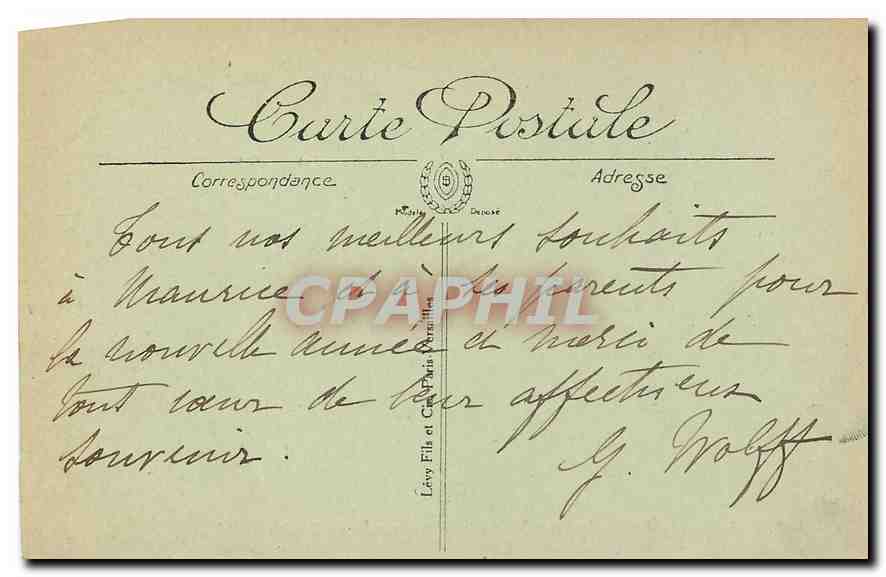 Carte Postale
Correspondance
Adresse
Modèle Déposé
Tous nos meilleurs souhaits
à Maurice et à ses parents pour
la nouvelle année et merci de
tout cœur de leur affectueux
souvenir.
G. Wolff
Lévy Fils et Cie, Paris-Versailles
CPAPHIL